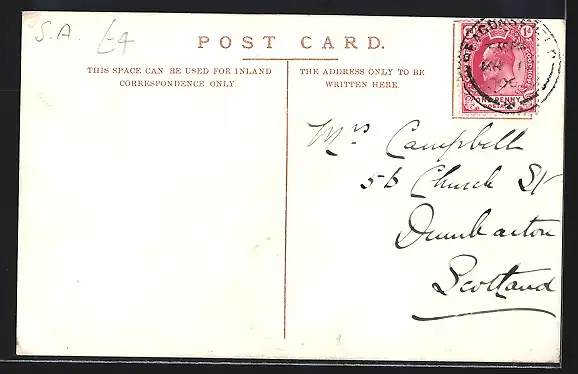 S.A. £4
POST CARD.
THIS SPACE CAN BE USED FOR INLAND
CORRESPONDENCE ONLY.
THE ADDRESS ONLY TO BE
WRITTEN HERE.
ONE PENNY
Mrs Campbell
56 Church St
Dumbarton
Scotland